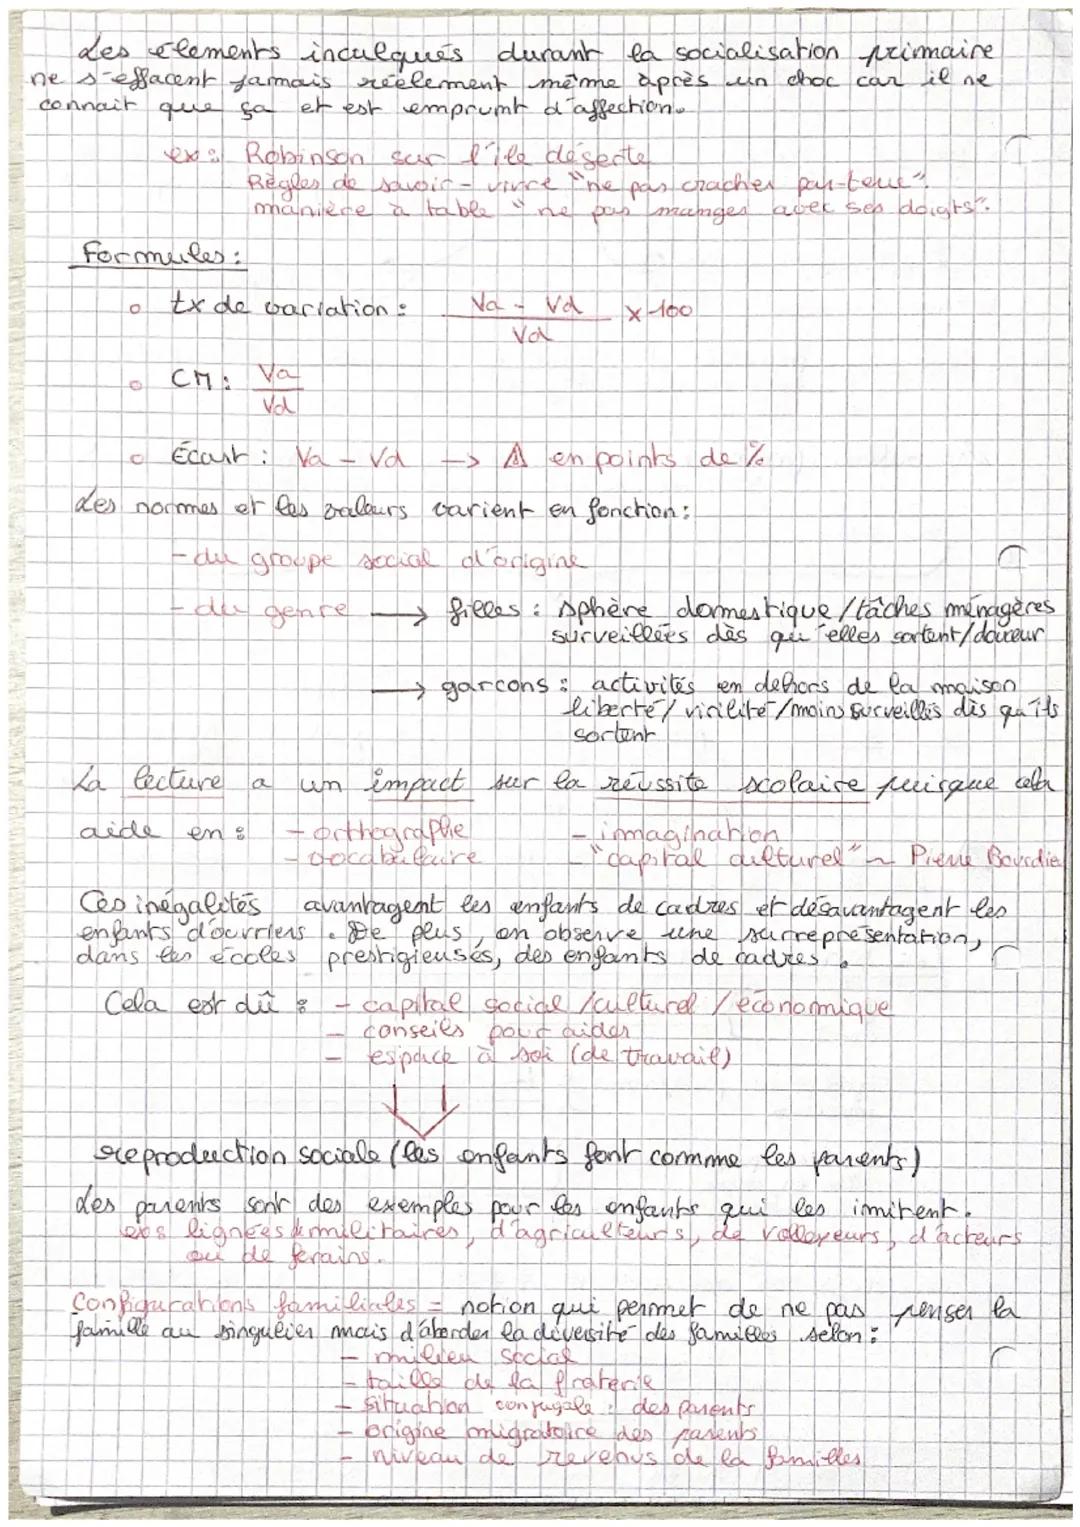 Les élements inculqués durant la socialisation primaire
ne s'effacent jamais réelement même après un choc car il ne
connait que ça et est emprumt d'affection.
ex : Robinson sur l'île déserte
Règles de savoir-vivre "ne pas cracher par-terre".
manière à table "ne pas manger avec ses doigts".
Formules :
tx de variation : Va - Vd / Vd x 100
CM : Va / Vd
Écart : Va - Vd -> ⚠ en points de %
Les normes et les valeurs varient en fonction :
- du groupe social d'origine
- du genre → filles : sphère domestique / tâches ménagères
surveillées dès qu'elles sortent / douceur
→ garcons : activités en dehors de la maison
liberté / virilité / moins surveillés dès qu'ils
sortent
La lecture a un impact sur la réussite scolaire puisque cela
aide en : - orthographe - immagination
- vocabulaire - "capital culturel" ~ Pierre Bourdieu
Ces inégalités avantagent les enfants de cadres et désavantagent les
enfants d'ouvriers. De plus, on observe une surreprésentation,
dans les écoles prestigieuses, des enfants de cadres.
Cela est dû : - capital social / culturel / économique
- conseils pour aider
- espace à soi (de travail)
reproduction sociale (les enfants font comme les parents)
Les parents sont des exemples pour les enfants qui les immitent.
ex : lignées de militaires, d'agriculteurs, de volleyeurs, d'acteurs
ou de forains.
Configurations familiales = notion qui permet de ne pas penser la
famille au singulier mais d'aborder la diversité des familles selon :
- milieu social
- taille de la fraterie
- situation conjugale des parents
- origine migratoire des parents
- niveau de revenus de la familles